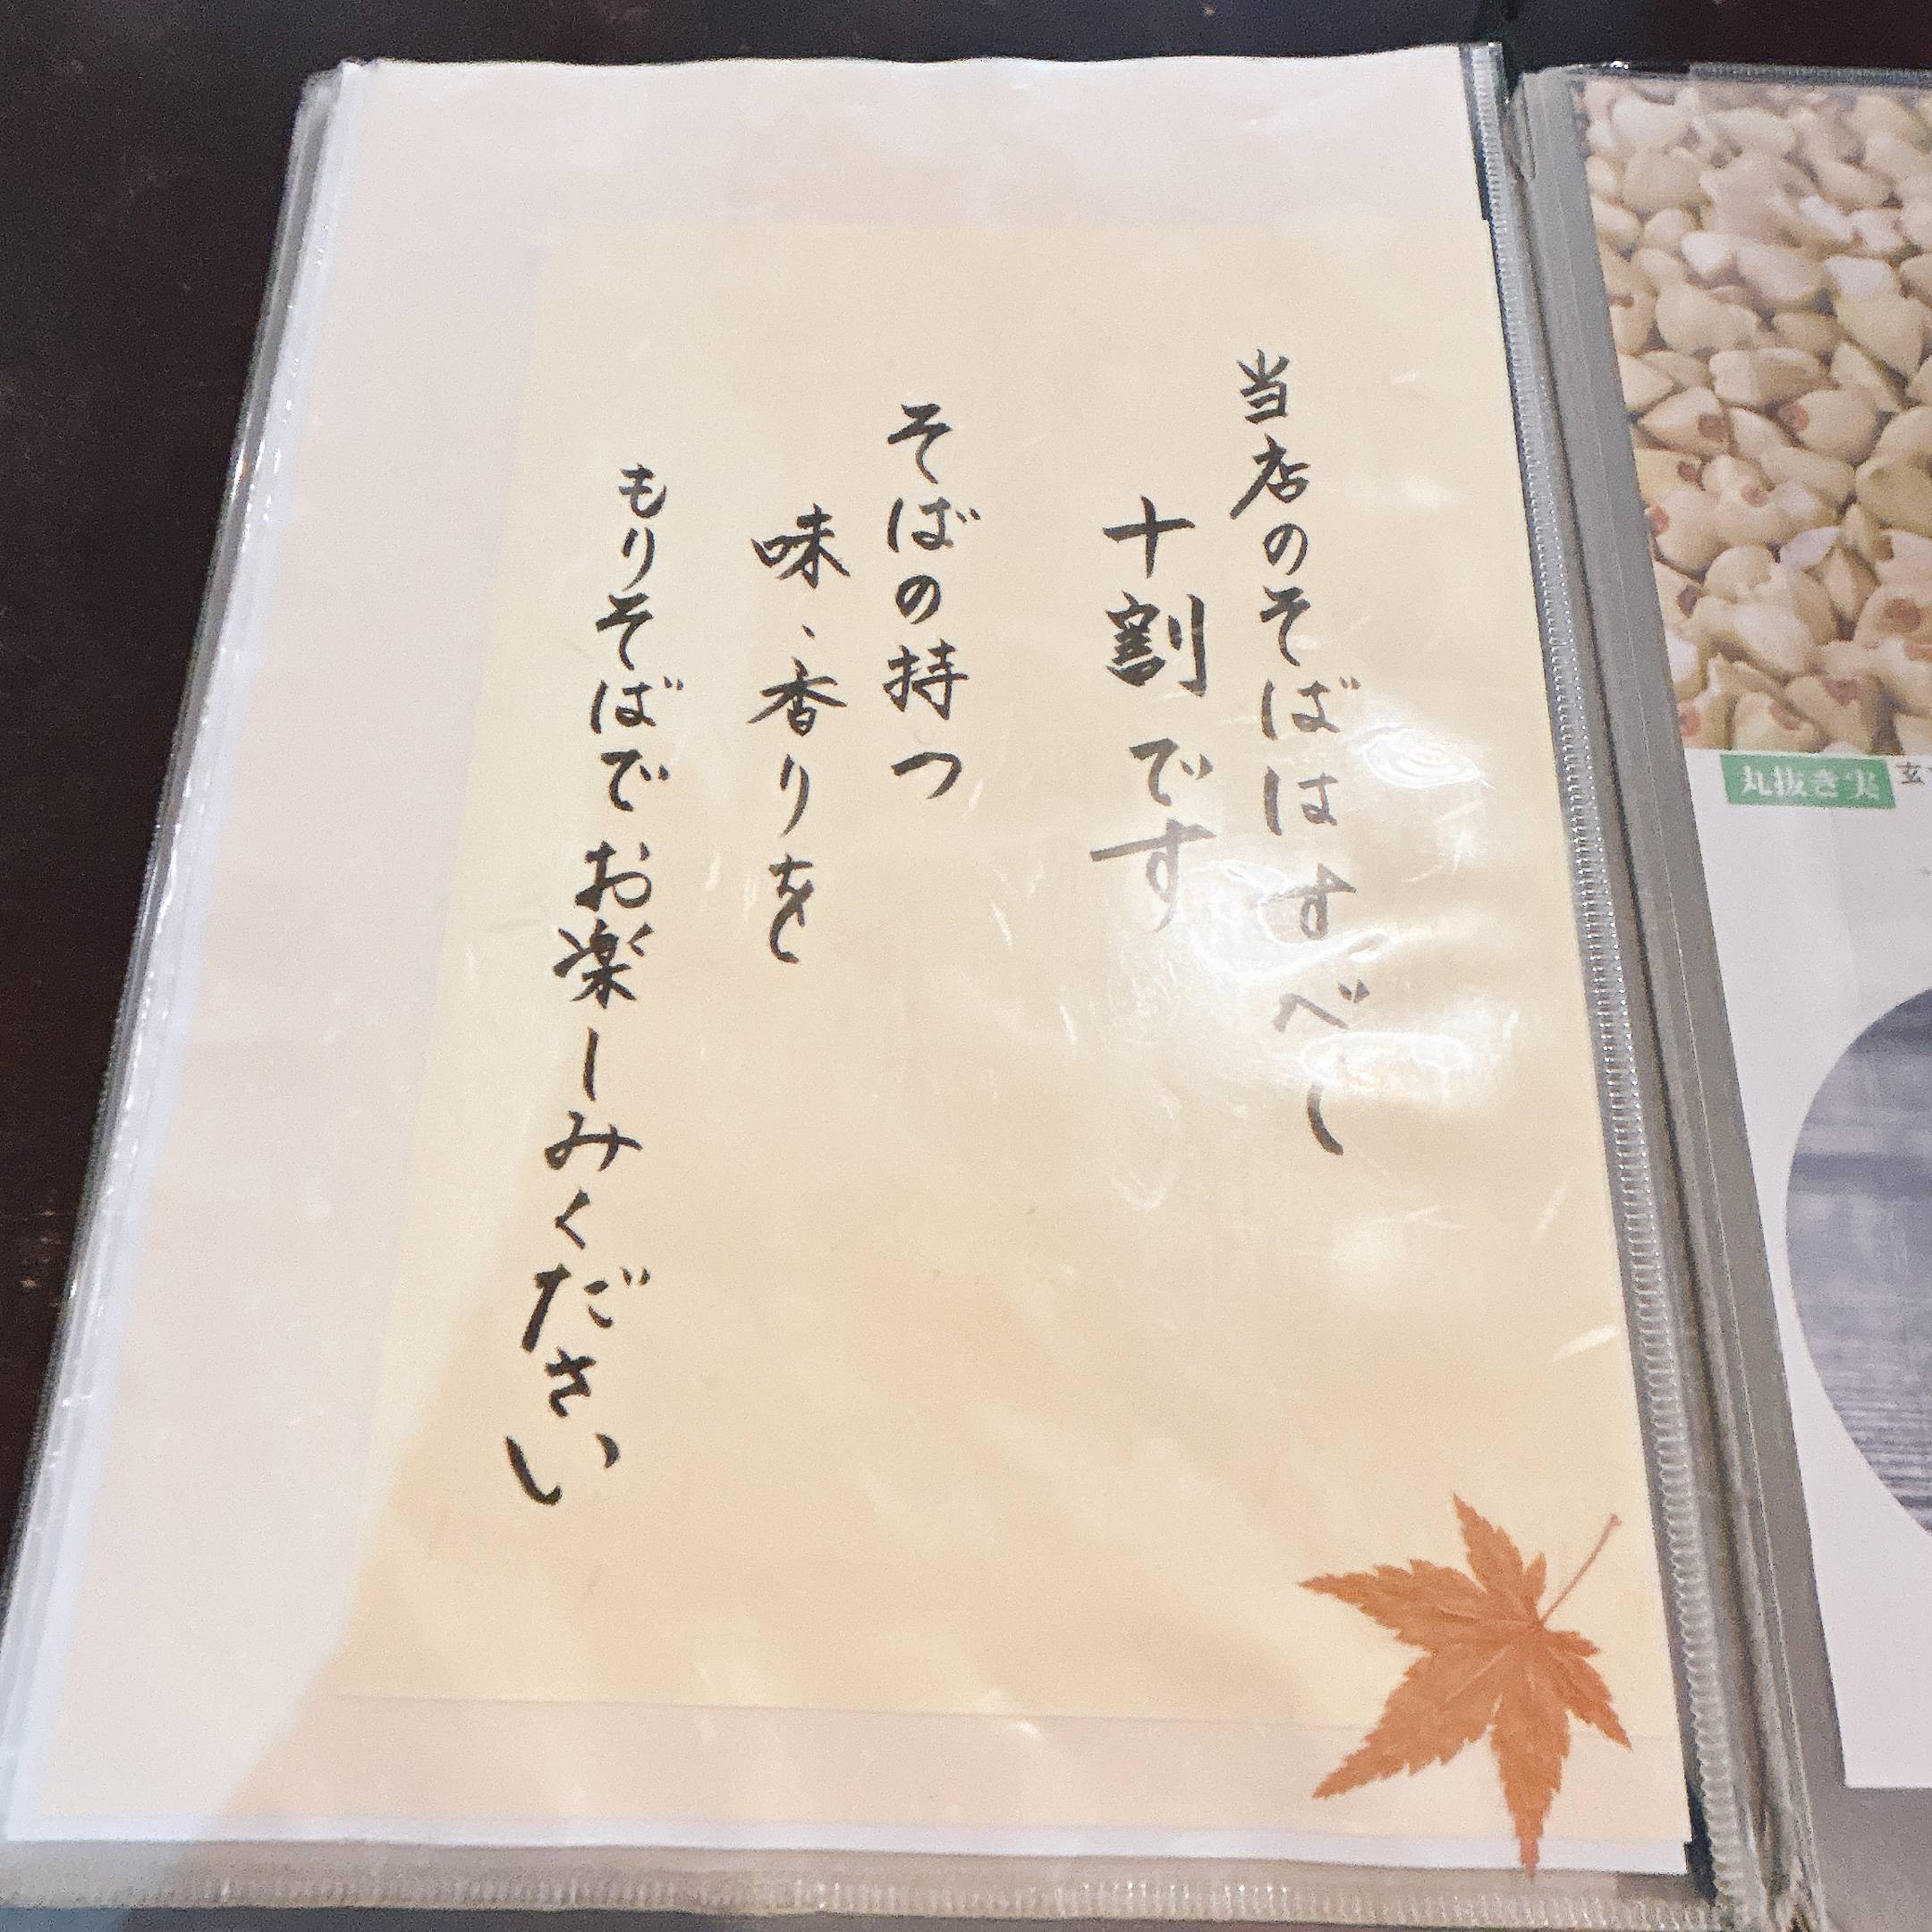 当店のそばはすべて
十割です
そばの持つ
味、香りを
もりそばでお楽しみください
丸抜き実
玄